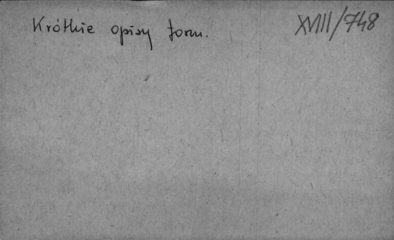 Krótkie opisy form. XVIII/748